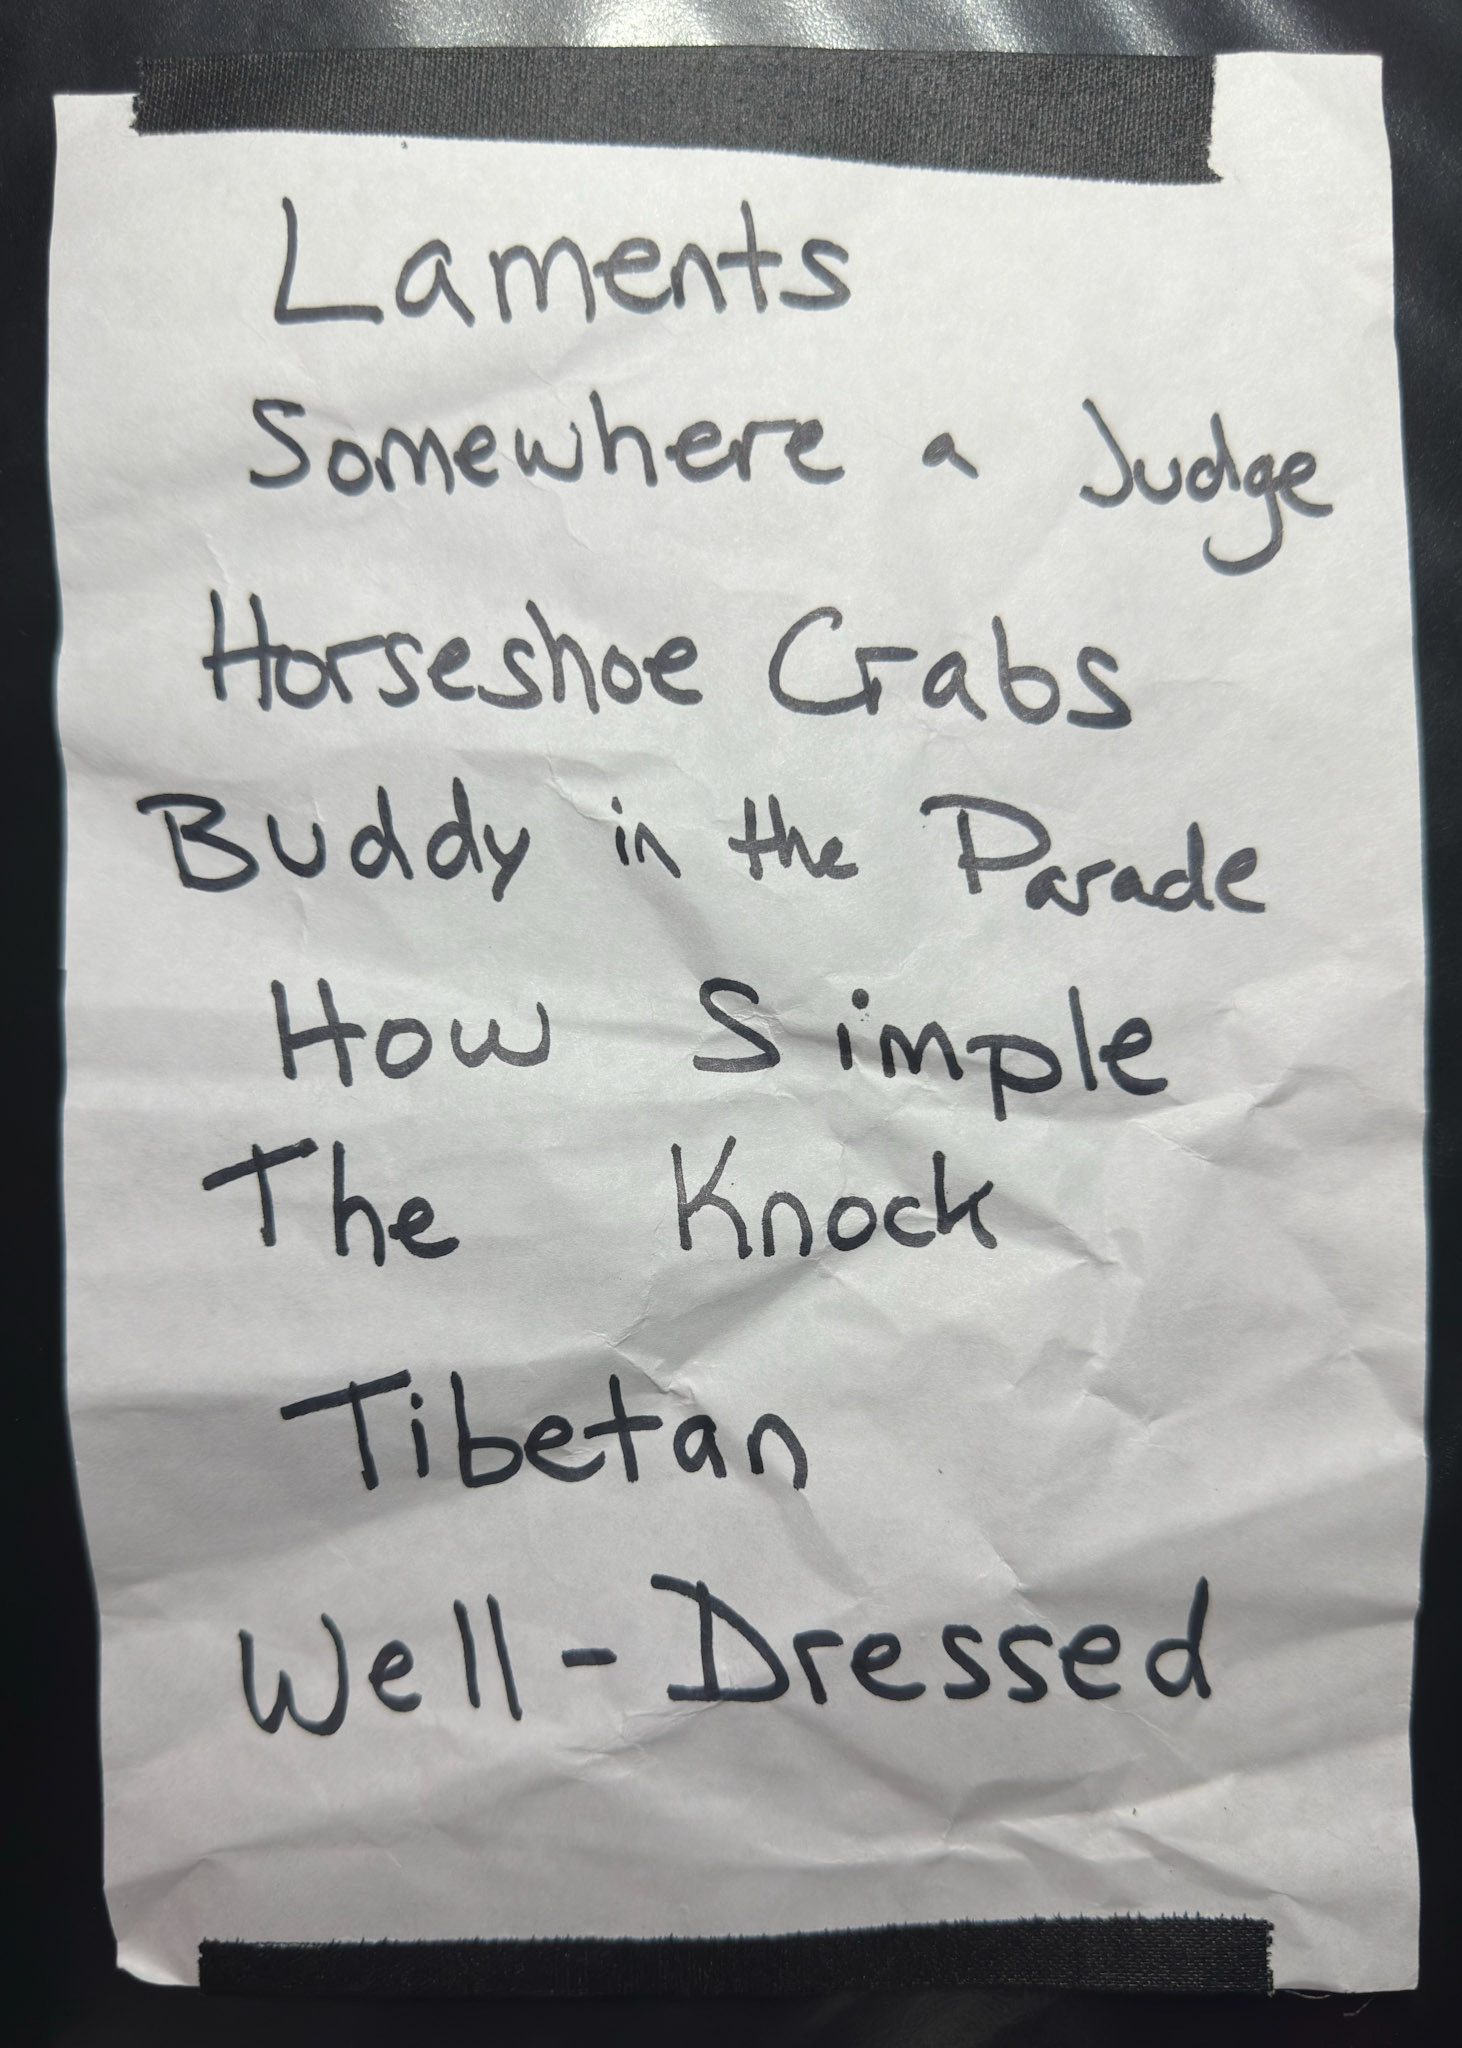 Laments
Somewhere a Judge
Horseshoe Crabs
Buddy in the Parade
How Simple
The Knock
Tibetan
Well-Dressed